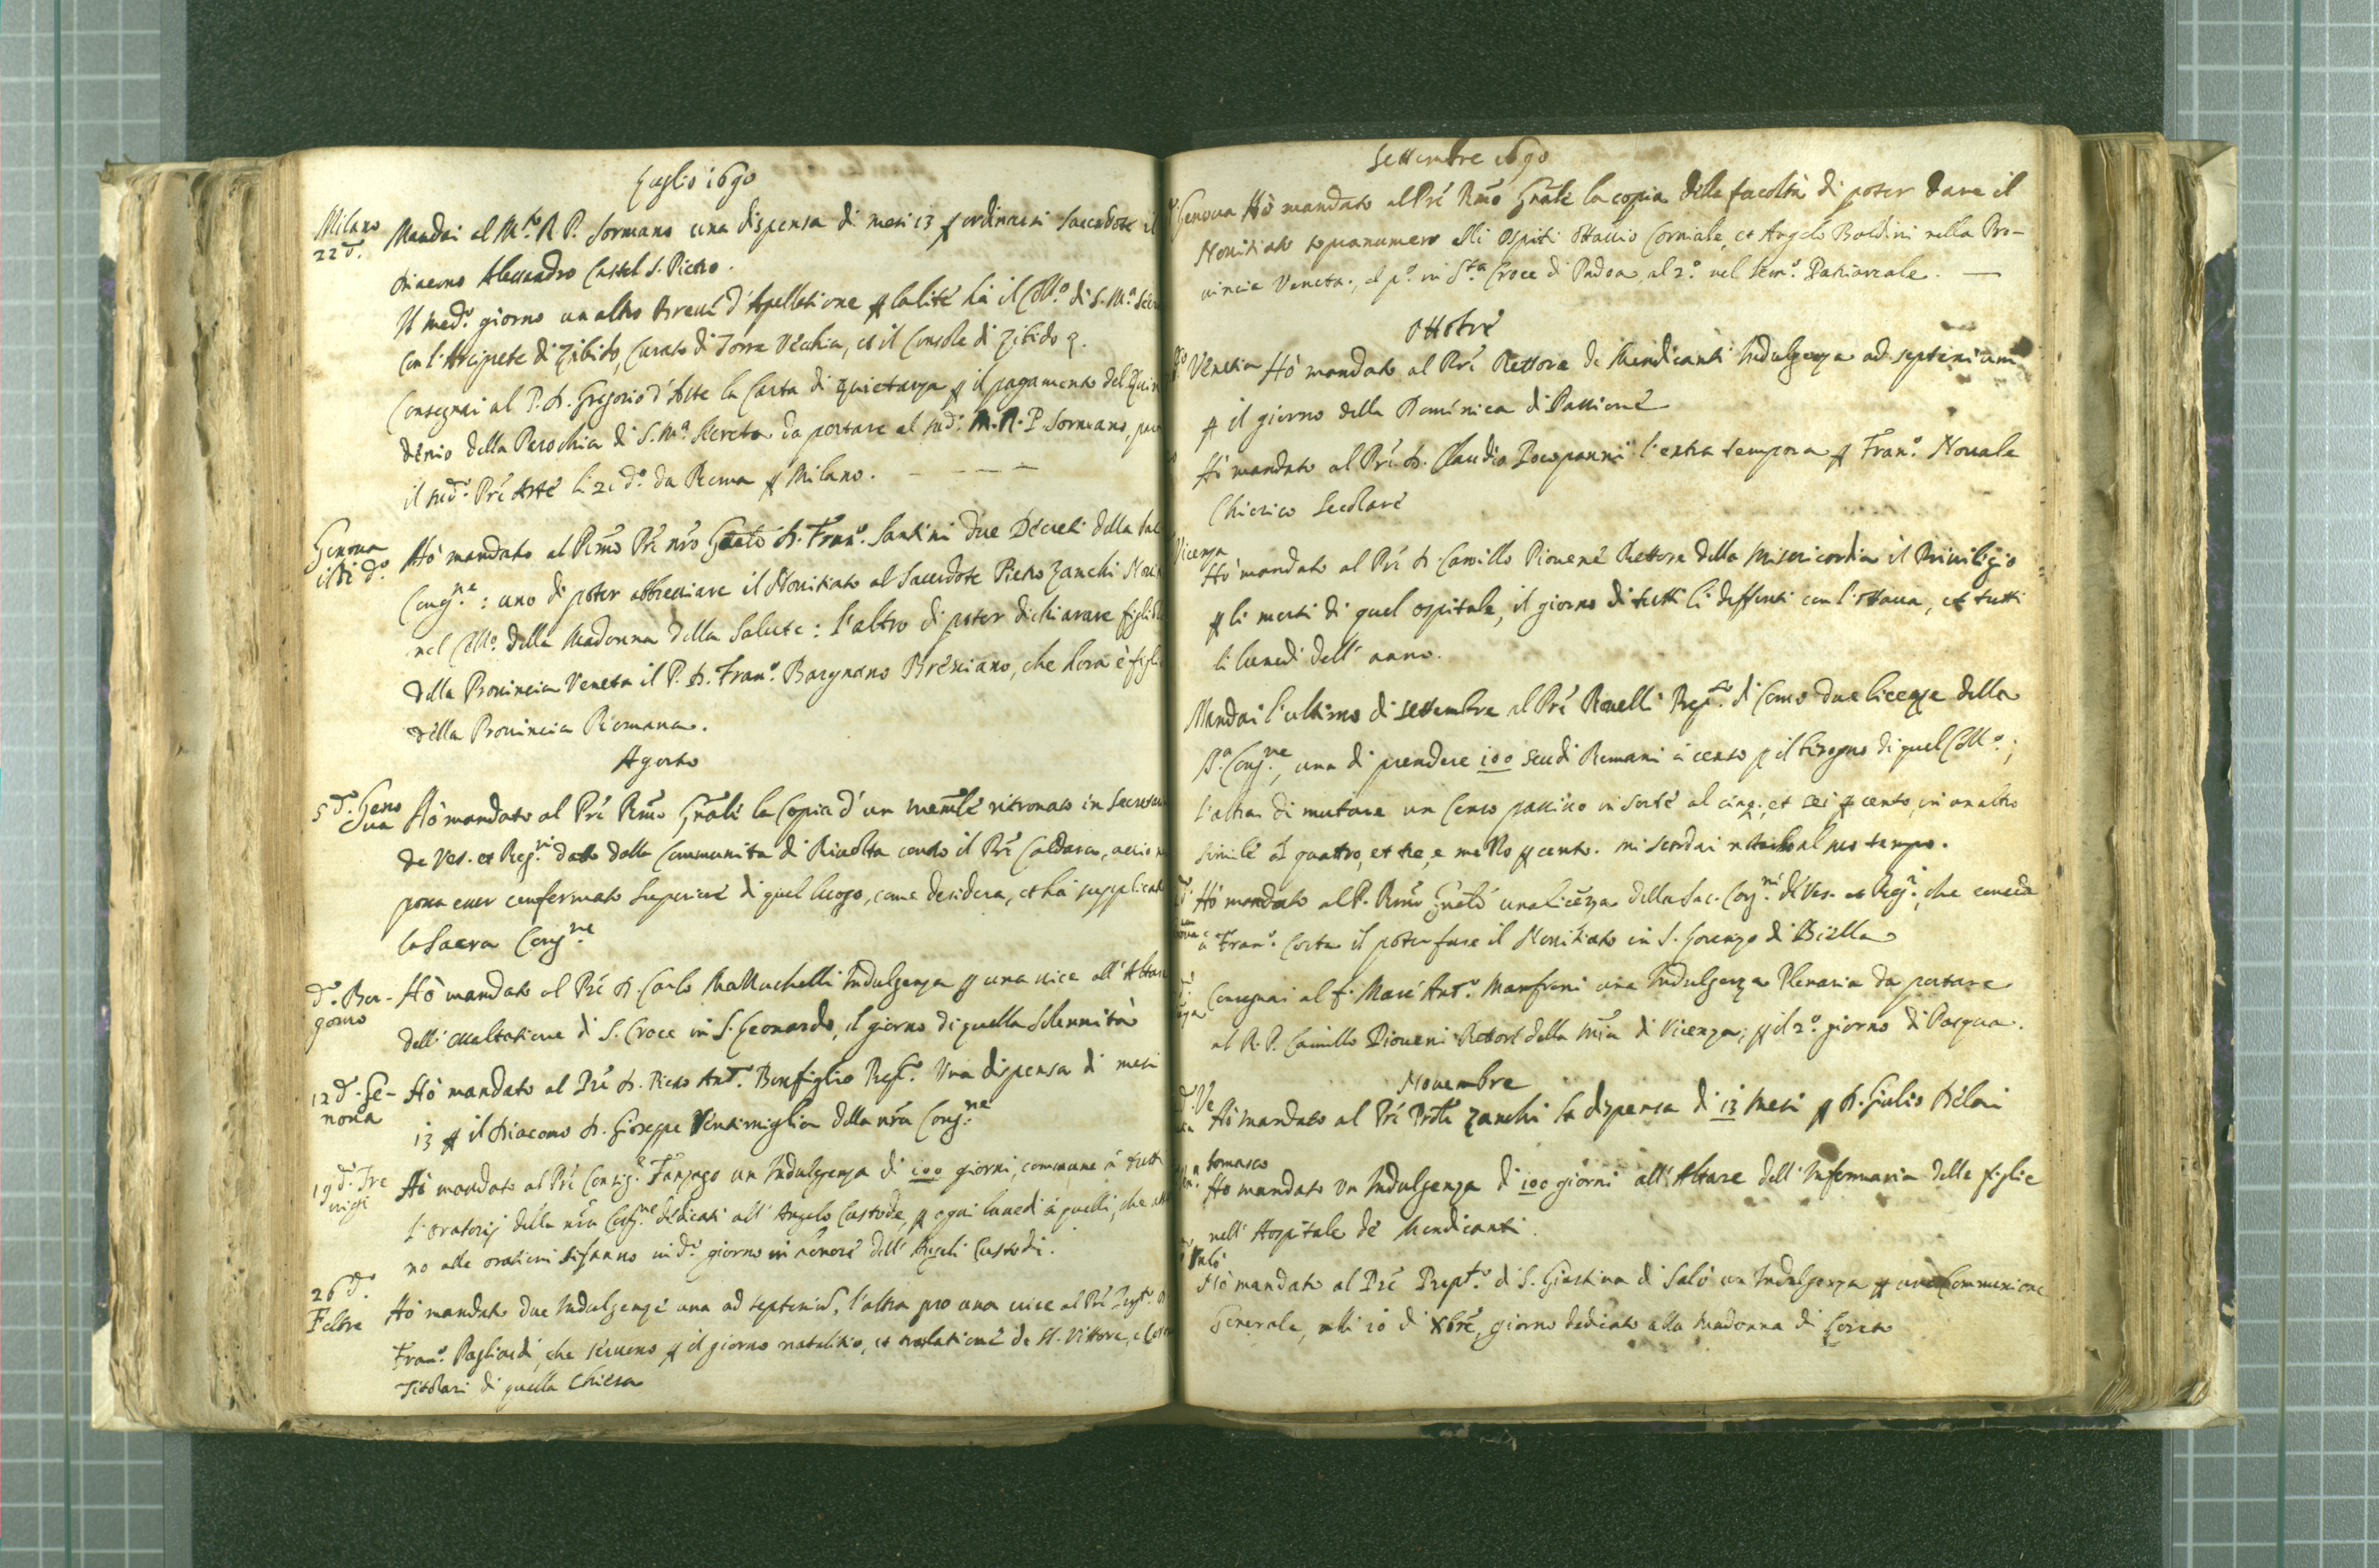 Luglio 1690
Milano
22 d.º
Mandai al M.to R. P. Sormano una dispensa di mesi 13 p ordinarsi Sacerdote il
Diacono Alessandro Castel S. Pietro.
Il med.º giorno un altro Breve d'Apellatione p la lite hà il Coll.º di S. M.ª Secr
con l'Arciprete di Zibido, Curato di Torre Vecchia, et il Console di Zibido
Consegnai al P. D. Gregorio d'Aste la Carta di quietanza p il pagamento del Quin
denio della Parochia di S. M.ª Secreta da portare al sud.º M. R. P. Sormano,
il sud.º Prê Aste li 21 d.º da Roma p Milano.
Genova
il di d.º
Hò mandato al Rmo Prê nrô Gnale D. Fran.º Santini due Decreti della Sac
Cong.ne : uno di poter abbreviare il Novitiato al Sacerdote Pietro Zanchi Novi
nel Coll.º della Madonna della Salute : l'altro di poter dichiarare figlio
della Provincia Veneta il P. D. Fran.º Bargnano Bresciano, che hora è figlio
della Provincia Romana.
Agosto
5 d.º Geno
va
Hò mandato al Prê Rmo Gnale la Copia d'un memle ritrovato in Secretar
de Ves. et Reg.ri dato dalla Communità di Rivolta contro il Prê Caldara, acciò n
possa esser confermato Superiore di quel luogo, come desidera, et hà supplicato
la Sacra Cong.ne
d.º Ber-
gomo
Hò mandato al Prê D. Carlo Mazzuchelli Indulgenza p una vice all'Altare
dell'essaltatione di S. Croce in S. Leonardo, il giorno di quella solennità
12 d.º Ge-
nova
Hò mandato al Prê D. Pietro Ant.º Bonfiglio Prep.º Una dispensa di mesi
13 p il Diacono D. Gioseppe Ventimiglia della nrâ Cong.ne
19 d.º Tre
vigi
Hò mandato al Prê Consig.e Fanzago un Indulgenza di 100 giorni, commune à tutti
l'oratorij della nrâ Cong.ne dedicati all'Angelo Custode, p ogni lunedi à quelli, che
no alle orationi si fanno in d.º giorno in honore dell'Angeli Custodi.
26 d.º
Feltre
Hò mandato due Indulgenze una ad septeniũ, l'altra pro una vice al Prê Prep.to D
Fran.º Pagliardi, che servono p il giorno natalitio, et translatione de SS. Vittore, e Coron
Titolari di quella Chiesa
Settembre 1690
Genova Hò mandato al Prê Rmo Gnale la copia della facoltà di poter dare il
Novitiato sopranumero alli Ospiti Ottavio Corniale, et Angelo Baldini nella Pro-
vincia Veneta, al p.º in S.ta Croce di Padoa, al 2.º nel Sem.º Patriarcale.
Ottobre
Venetia Hò mandato al Prê Rettore de Mendicanti Indulgenza ad septenium
p il giorno della Domenica di Passione
Hò mandato al Prê D. Claudio Bocopanni l'extra tempora p Fran.º Novale
Chierico Secolare
Vicenza
Hò mandato al Prê D. Camillo Piovene Rettore della Misericordia il Privilegio
p li morti di quel ospitale, il giorno di tutti li deffonti con l'ottava, et tutti
li lunedi dell'anno.
Mandai l'ultimo di settembre al Prê Rovelli Prep.to di Como due licenze della
S.ª Cong.ne, una di prendere 100 scudi Romani à censo p il bisogno di quel Coll.º ;
l'altra di mutare un Censo passivo in sorte al cinq., et sei p cento, in un altro
simile à quattro, et tre, e mezzo p cento. mi scordai notarlo al suo tempo.
Hò mandato al P. Rmo Gnale una licenza della Sac. Cong.ne de Ves. et Reg.ri, che conceda
à Fran.º Costa il poter fare il Novitiato in S. Lorenzo di Biella
Consegnai al f. Marc'Ant.º Manfroni una Indulgenza Plenaria da portare
al R. P. Camillo Piovene Rettore della Mia di Vicenza, p il 2.º giorno di Pasqua.
Novembre
d.º Ve
Hò mandato al Prê Prôle Zanchi la dispensa di 13 mesi p D. Giulio Belori
tomasco
Hò mandato un Indulgenza di 100 giorni all'Altare dell'Infermaria delle figlie
nell'Hospitale de Mendicanti.
Salò
Hò mandato al Prê Prep.to di S. Giustina di Salò un Indulgenza p una Communione
Generale, alli 10 di Xbre, giorno dedicato alla Madonna di Loreto